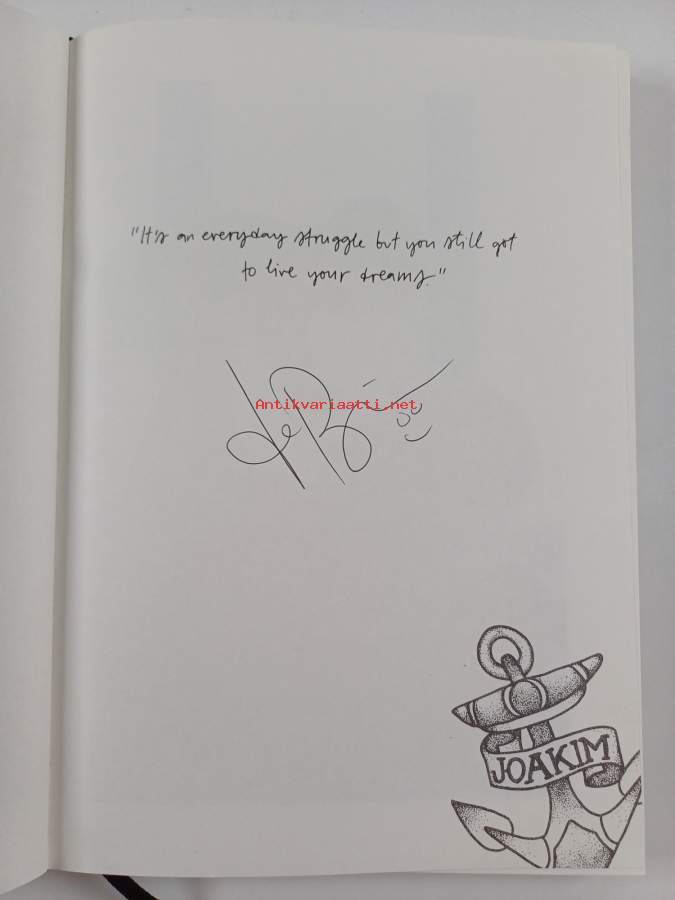 "It's an everyday struggle but you still got
to live your dreams."
Antikvariaatti.net
JOAKIM